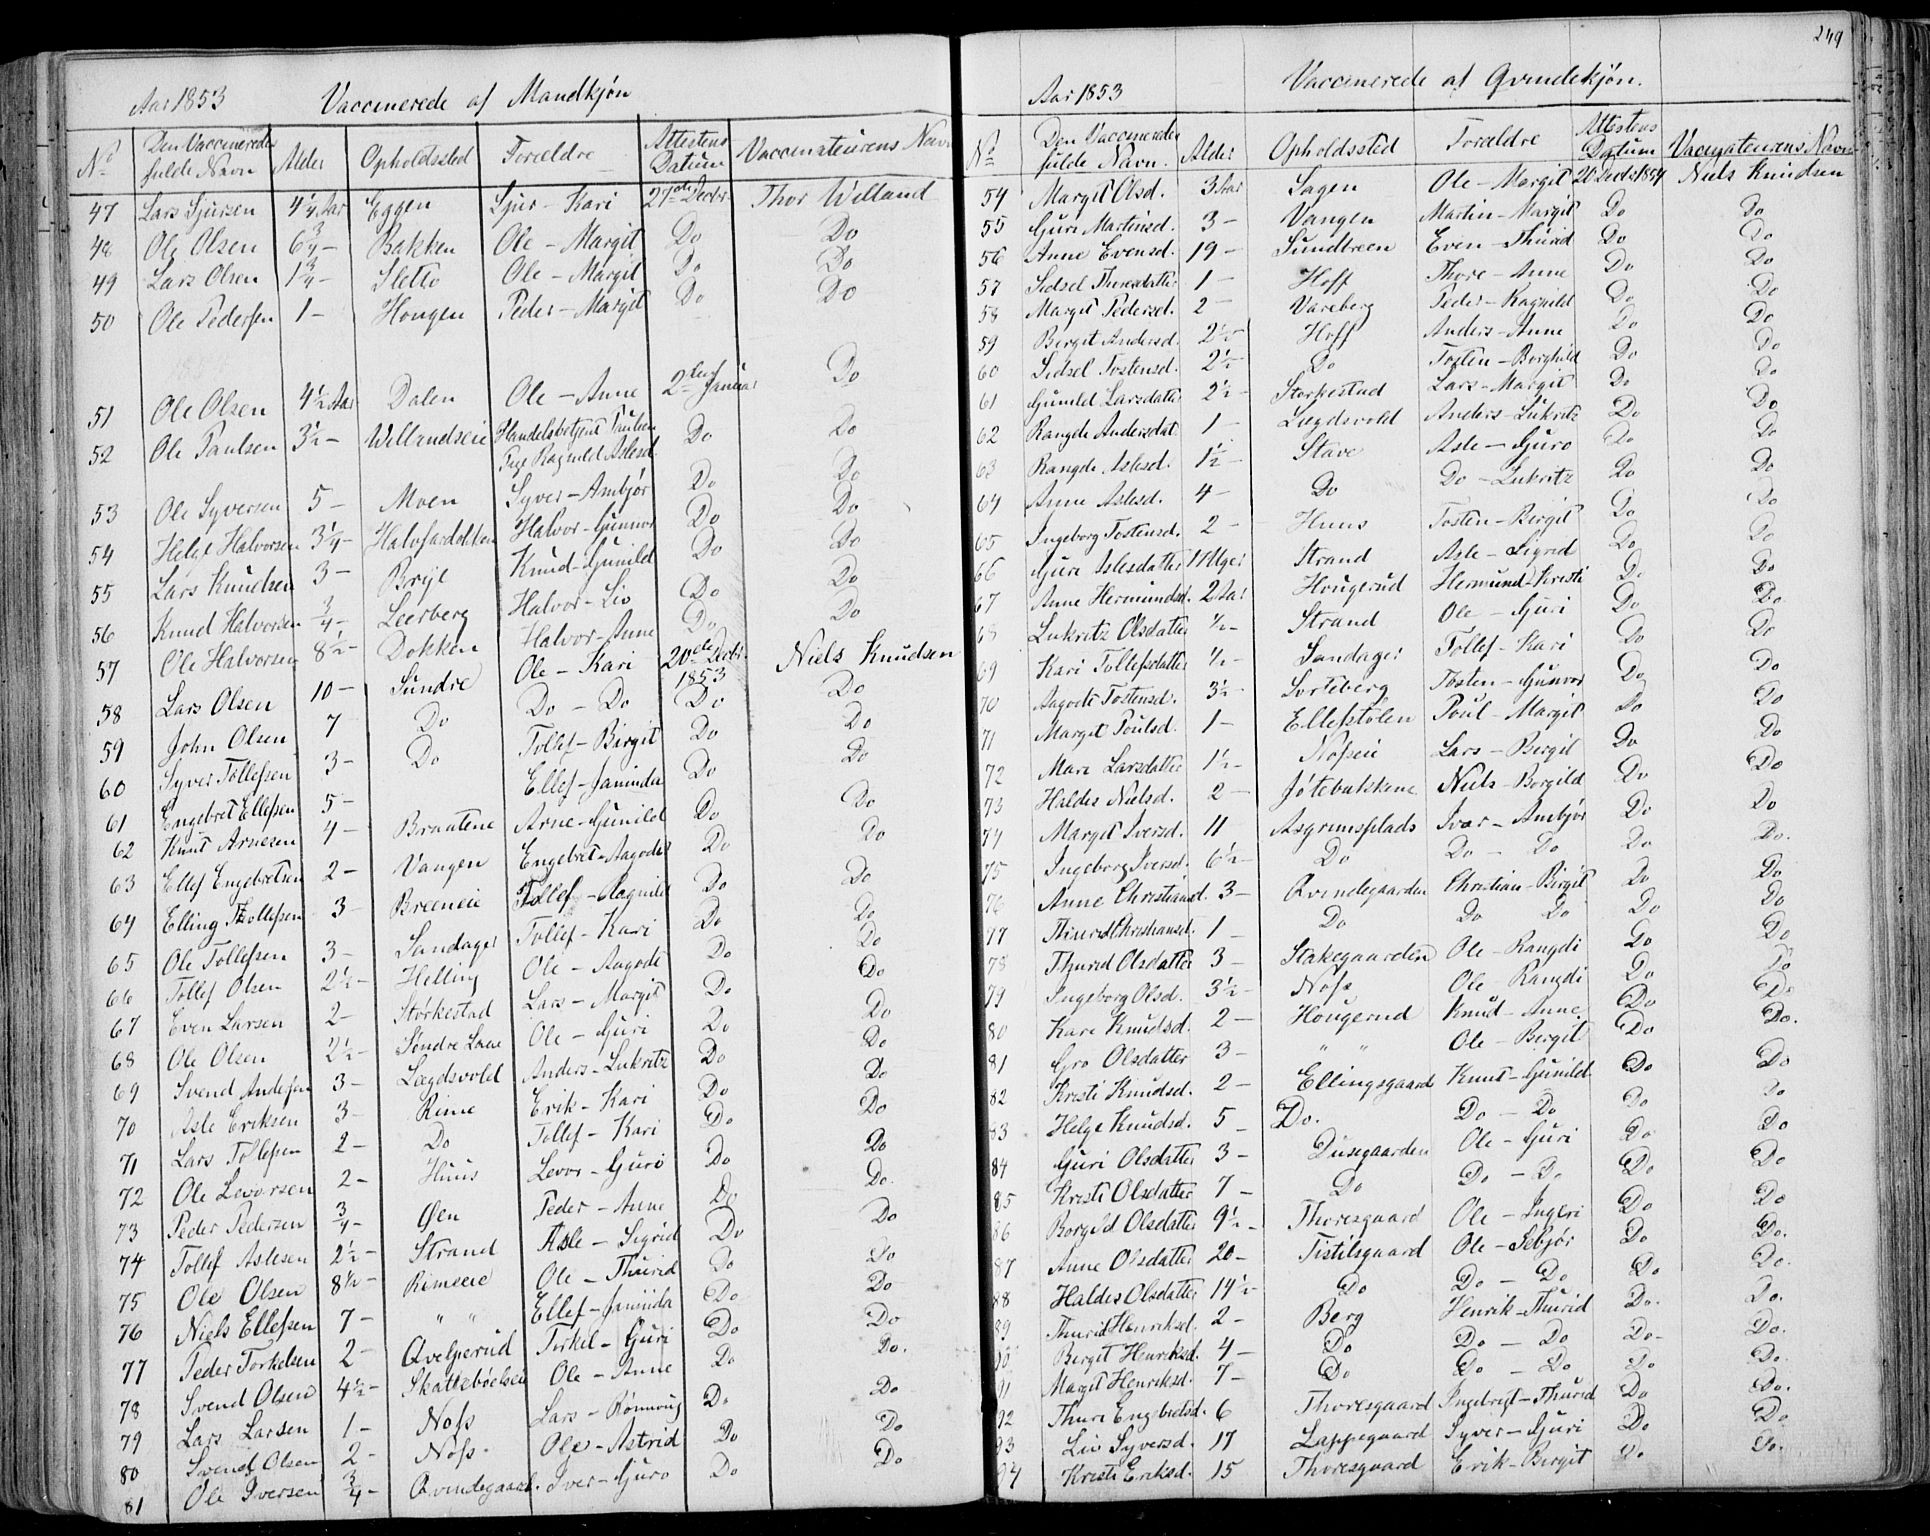 249
Aar 1853 Vaccinerede af Mandkjøn
No Den Vaccineredes fulde Navn Alder Opholdssted Forældre Attestens Datum Vaccinateurens Navn
47 Lars Sjursen 4 1/4 Aar Eggen Sjur - Kari 27de Decbr. Thor Willand
48 Ole Olsen 6 3/4 - Bakken Ole - Margit Do Do
49 Lars Olsen 1 3/4 - Sletto Ole - Margit Do Do
50 Ole Pedersen 1 - Hougen Peder - Margit Do Do
51 Ole Olsen 4 1/2 Aar Dalen Ole - Anne 2den Januar Do
52 Ole Paulsen 3 1/2 - Willandseie Handelsbetjent Paulsen Do Do
Pige Ragnild Aslesd.
53 Ole Syversen 5 - Moen Syver - Ambjør Do Do
54 Helge Halvorsen 3 1/4 - Halvor - Gunnor Do Do
55 Lars Knudsen 3 - Brije Knud - Gunild Do Do
56 Knud Halvorsen 3/4 - Leerberg Halvor - Liv Do Do
57 Ole Halvorsen 8 1/2 - Dokken Halvor - Anne Do Do
58 Lars Olsen 10 - Sundre Ole - Kari 20de Decbr. 1853 Niels Knudsen
59 John Olsen 7 Do Do - Do Do Do
60 Syver Tollefsen 3 - Do Tollef - Birgit Do Do
61 Engebret Ellefsen 5 - Ellef - Jaminda Do Do
62 Knut Arnesen 4 - Braatene Arne - Gunild Do Do
63 Ellef Engebretsen 2 - Vangen Engebret - Aagodes Do Do
64 Elling Tollefsen 3 - Breeneie Tollef - Ragnild Do Do
65 Ole Tollefsen 3 - Sandager Tollef - Kari Do Do
66 Tollef Olsen 2 1/2 - Helling Ole - Aagodt Do Do
67 Even Larsen 2 - Storkestad Lars - Margit Do Do
68 Ole Olsen 2 1/2 - Søndre Lane Ole - Guri Do Do
69 Svend Andersen 3 - Lægdsvold Anders - Lukritz Do Do
70 Asle Eriksen 3 - Rime Erik - Kari Do Do
71 Lars Tollefsen 2 - Do Tollef - Kari Do Do
72 Ole Levorsen 2 - Huus Levor - Guro Do Do
73 Peder Pedersen 3/4 - Øen Peder - Anne Do Do
74 Tollef Aslesen 2 1/2 - Strand Asle - Sigrid Do Do
75 Ole Olsen 8 1/2 - Rimeeie Ole - Thurid Do Do
76 Niels Ellefsen 7 - " " Ellef - Jamiida Do Do
77 Peder Torkelsen 2 - Qvelperud Tirkel - Guri Do Do.
78 Svend Olsen 4 1/2 - Skattebøelseie Ole - Anne Do Do
79 Lars Larsen 1 - Nofs Lars - Rønnoug Do Do
80 Svend Olsen 2 - Nofs Ole - Astrid Do Do
81 Ole Iversen 3/4 - Qvindegaard. Iver - Guro Do Do
Aar 1853 Vaccinerede af Qvindekjøn.
No Den Vaccineredes fulde Navn. Alder Opholdssted Forældre Attestens Datum Vaccinateurens Navn
54 Margit Olsd. 3 Aar Sagen Ole - Margit 20 Decbr 1854 Niels Knudsen
55 Guri Martinsd. 3 - Vangen Martin - Margit Do Do
56 Anne Evensd. 19 - Sundbreen Even - Thurid Do Do
57 Sidsel Thoresdatter 1 - Hoff Thore - Anne Do Do
58 Margit Pedersd. 2 - Vareberg Peder - Ragnild Do Do
59 Bergit Andersd. 2 1/2 - Hoff Anders - Anne Do Do
60 Sidsel Tostensd. 2 1/2 - Do Tosten - Borghild Do Do
61 Gunild Larsdatter 2 1/2 - Storkestad Lars - Margit Do Do
62 Rangde Andersdat. 1 - Lægdsvold Anders - Lukritz Do Do
63 Rangde Aslesd. 1 1/2 - Stave Asle - Guro Do Do
64 Anne Aslesd. 4 - Do Do - Lukritz Do Do
65 Ingeborg Tostensd. 2 - Huus Tosten - Birgit Do Do
66 Guri Aslesdatter 11 Uger Strand Asle - Sigrid Do Do
67 Anne Hermundsd. 2 Aar Hougerud Hermund - Kristi Do Do
68 Lukritz Olsdatter 1/2 - Strand Ole - Guri Do Do
69 Kari Tollefsdatter 1/2 - Sandager Tollef - Kari Do Do
70 Aagodt Tostensd. 3 1/2 - Sorteberg Tosten - Gunvor Do Do
71 Margit Poulsd. 1 - Ellefstølen Poul - Margit Do Do
72 Mari Larsdatter 1 1/2 - Nofseie Lars - Bergit Do Do
73 Haldes Nielsd. 2 - Jøtebakkene Niels - Borgild Do Do
74 Margit Iversd. 11 Asgrimsplads Ivar - Ambjør Do Do
75 Ingeborg Iversd. 6 1/2 - Do Do - Do Do Do.
76 Anne Christiansd. 3 - Qvindegaarden Christian - Birgit Do Do
77 Thurid Christiansd. 1 - Do Do Do Do Do
78 Thurid Olsdatter 3 - Stakegaarden Ole - Rangdi Do Do
79 Ingeborg Olsd. 3 1/2 - Nofs Ole - Rangdi Do Do
80 Kari Knudsd. 2 - Hougerud Knud - Anne Do Do
81 Gro Olsdatter 3 - " " Ole - Bergit Do Do.
82 Kristi Knudsd. 2 - Ellingsgaard Knut - Gunild Do Do
83 Helge Knudsd. 5 - Do. Do - Do Do Do
84 Guri Olsdatter 3 - Dusegaarden Ole - Guri Do Do
85 Kristi Olsdatter 7 - Do Do - Do Do Do
86 Borgild Olsdatter 9 1/2 - Thoresgaard Ole - Ingeri Do Do
87 Anne Olsdatter 20 - Tistilsgaard Ole - Sebjør Do Do.
88 Haldes Olsdatter 14 1/2 - Do Do - Do Do Do.
89 Thurid Henriksd. 2 - Berg Henrik - Thurid Do. Do.
90 Bergit Henriksd. 4 - Do Do - Do Do - Do.
91 Margit Henriksd. 7 - Do Do - Do Do Do.
92 Thuri Engebretsd. 6 Thoresgaard Ingebregt - Thurid Do Do.
93 Liv Syversd. 17 Lappegaard Syver - Guri Do Do
94 Kristi Eriksd. 15 Thoresgaard Erik - Bergit Do Do.